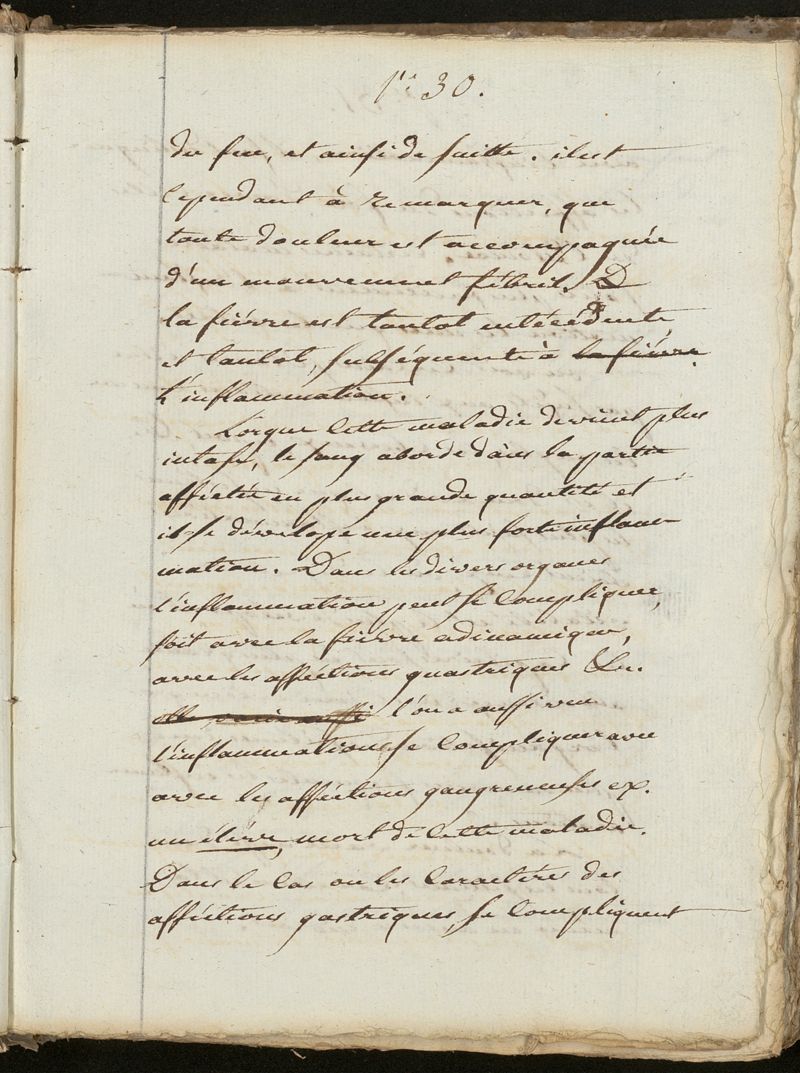 1re 30.
du feu, et ainsi de suitte. il est
cependant à remarquer, que
toute douleur est accompagnée
d'un mouvement fébril. D
la fiévre est tantot antécédente
et tantot, subséquente à la fiévre
L'inflammation.
Lorque cette maladie devient plus
intase, le sang aborde dans la partie
affectée en plus grande quantité et
il se dévelope une plus forte inflam
mation. Dans les divers organes
l'inflammation peut se compliquer,
soit avec la fiévre adinamique,
avec les afféctions guastriques &c.
elle varie aussi l'on a aussi vu
l'inflammation se compliquer avec
avec les afféctions gangreneuses ex.
un éléve, mort de cette maladie.
Dans le cas ou les caractéres des
afféctions gastriques, se compliquent